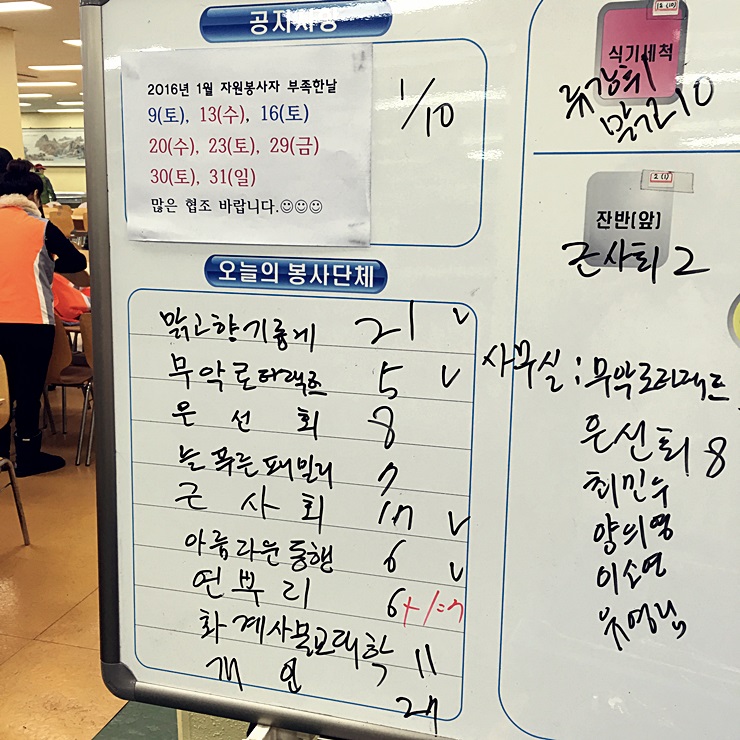 공지사항
2016년 1월 자원봉사자 부족한날
9(토), 13(수), 16(토)
20(수), 23(토), 29(금)
30(토), 31(일)
많은 협조 바랍니다.☺☺☺
1/10
오늘의 봉사단체
맑고향기롭게 21 v
무악로타랙트 5 v
운선회 8
늘푸른패밀리 7
근사회 17 v
아름다운동행 6 v
연뿌리 6+1=7
화계사불교대학 11
개인 27
12 (10)
식기세척
맑고 10
12 (1)
잔반(앞)
근사회 2
사무실 : 무악로타랙트
운선회 8
최민수
양의영
이소연